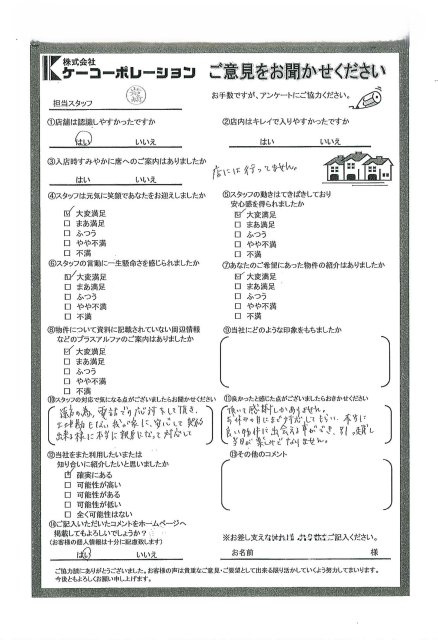 株式会社
ケーコーポレーション
ご意見をお聞かせください
担当スタッフ
お手数ですが、アンケートにご協力ください。
①店舗は認識しやすかったですか
はい いいえ
②店内はキレイで入りやすかったですか
はい いいえ
③入店時すみやかに席へのご案内はありましたか
はい いいえ
店には行ってません。
④スタッフは元気に笑顔であなたをお迎えしましたか
☑ 大変満足
□ まあ満足
□ ふつう
□ やや不満
□ 不満
⑤スタッフの動きはてきぱきしており
安心感を得られましたか
☑ 大変満足
□ まあ満足
□ ふつう
□ やや不満
□ 不満
⑥スタッフの言動に一生懸命さを感じられましたか
☑ 大変満足
□ まあ満足
□ ふつう
□ やや不満
□ 不満
⑦あなたのご希望にあった物件の紹介はありましたか
☑ 大変満足
□ まあ満足
□ ふつう
□ やや不満
□ 不満
⑧物件について資料に記載されていない周辺情報
などのプラスアルファのご案内はありましたか
☑ 大変満足
□ まあ満足
□ ふつう
□ やや不満
□ 不満
⑨当社にどのような印象をもちましたか
⑩スタッフの対応で気になる点がございましたらお聞かせください
遠方の為、電話での応対をして頂き、
土地勘もない我が家に、安心して契約
出来る様に本当に親身になって対応して
⑪良かったと感じた点がございましたらおきかせください
頂いて感謝しかありません。
お休みの日にまで対応してもらい、本当に
良い物件に出会える事ができ、引っ越し
当日が楽しみでなりません。
⑫当社をまた利用したいまたは
知り合いに紹介したいと思いましたか
☑ 確実にある
□ 可能性が高い
□ 可能性がある
□ 可能性が低い
□ 全く可能性はない
⑬その他のコメント
⑭ご記入いただいたコメントをホームページへ
掲載してもよろしいでしょうか?
(お客様の個人情報は十分に配慮致します)
はい いいえ
※お差し支えなければ ご記入ください。
お名前 様
ご協力誠にありがとうございました。お客様の声は貴重なご意見・ご要望として出来る限り活かしていくよう努力してまいります。
今後ともよろしくお願い申し上げます。